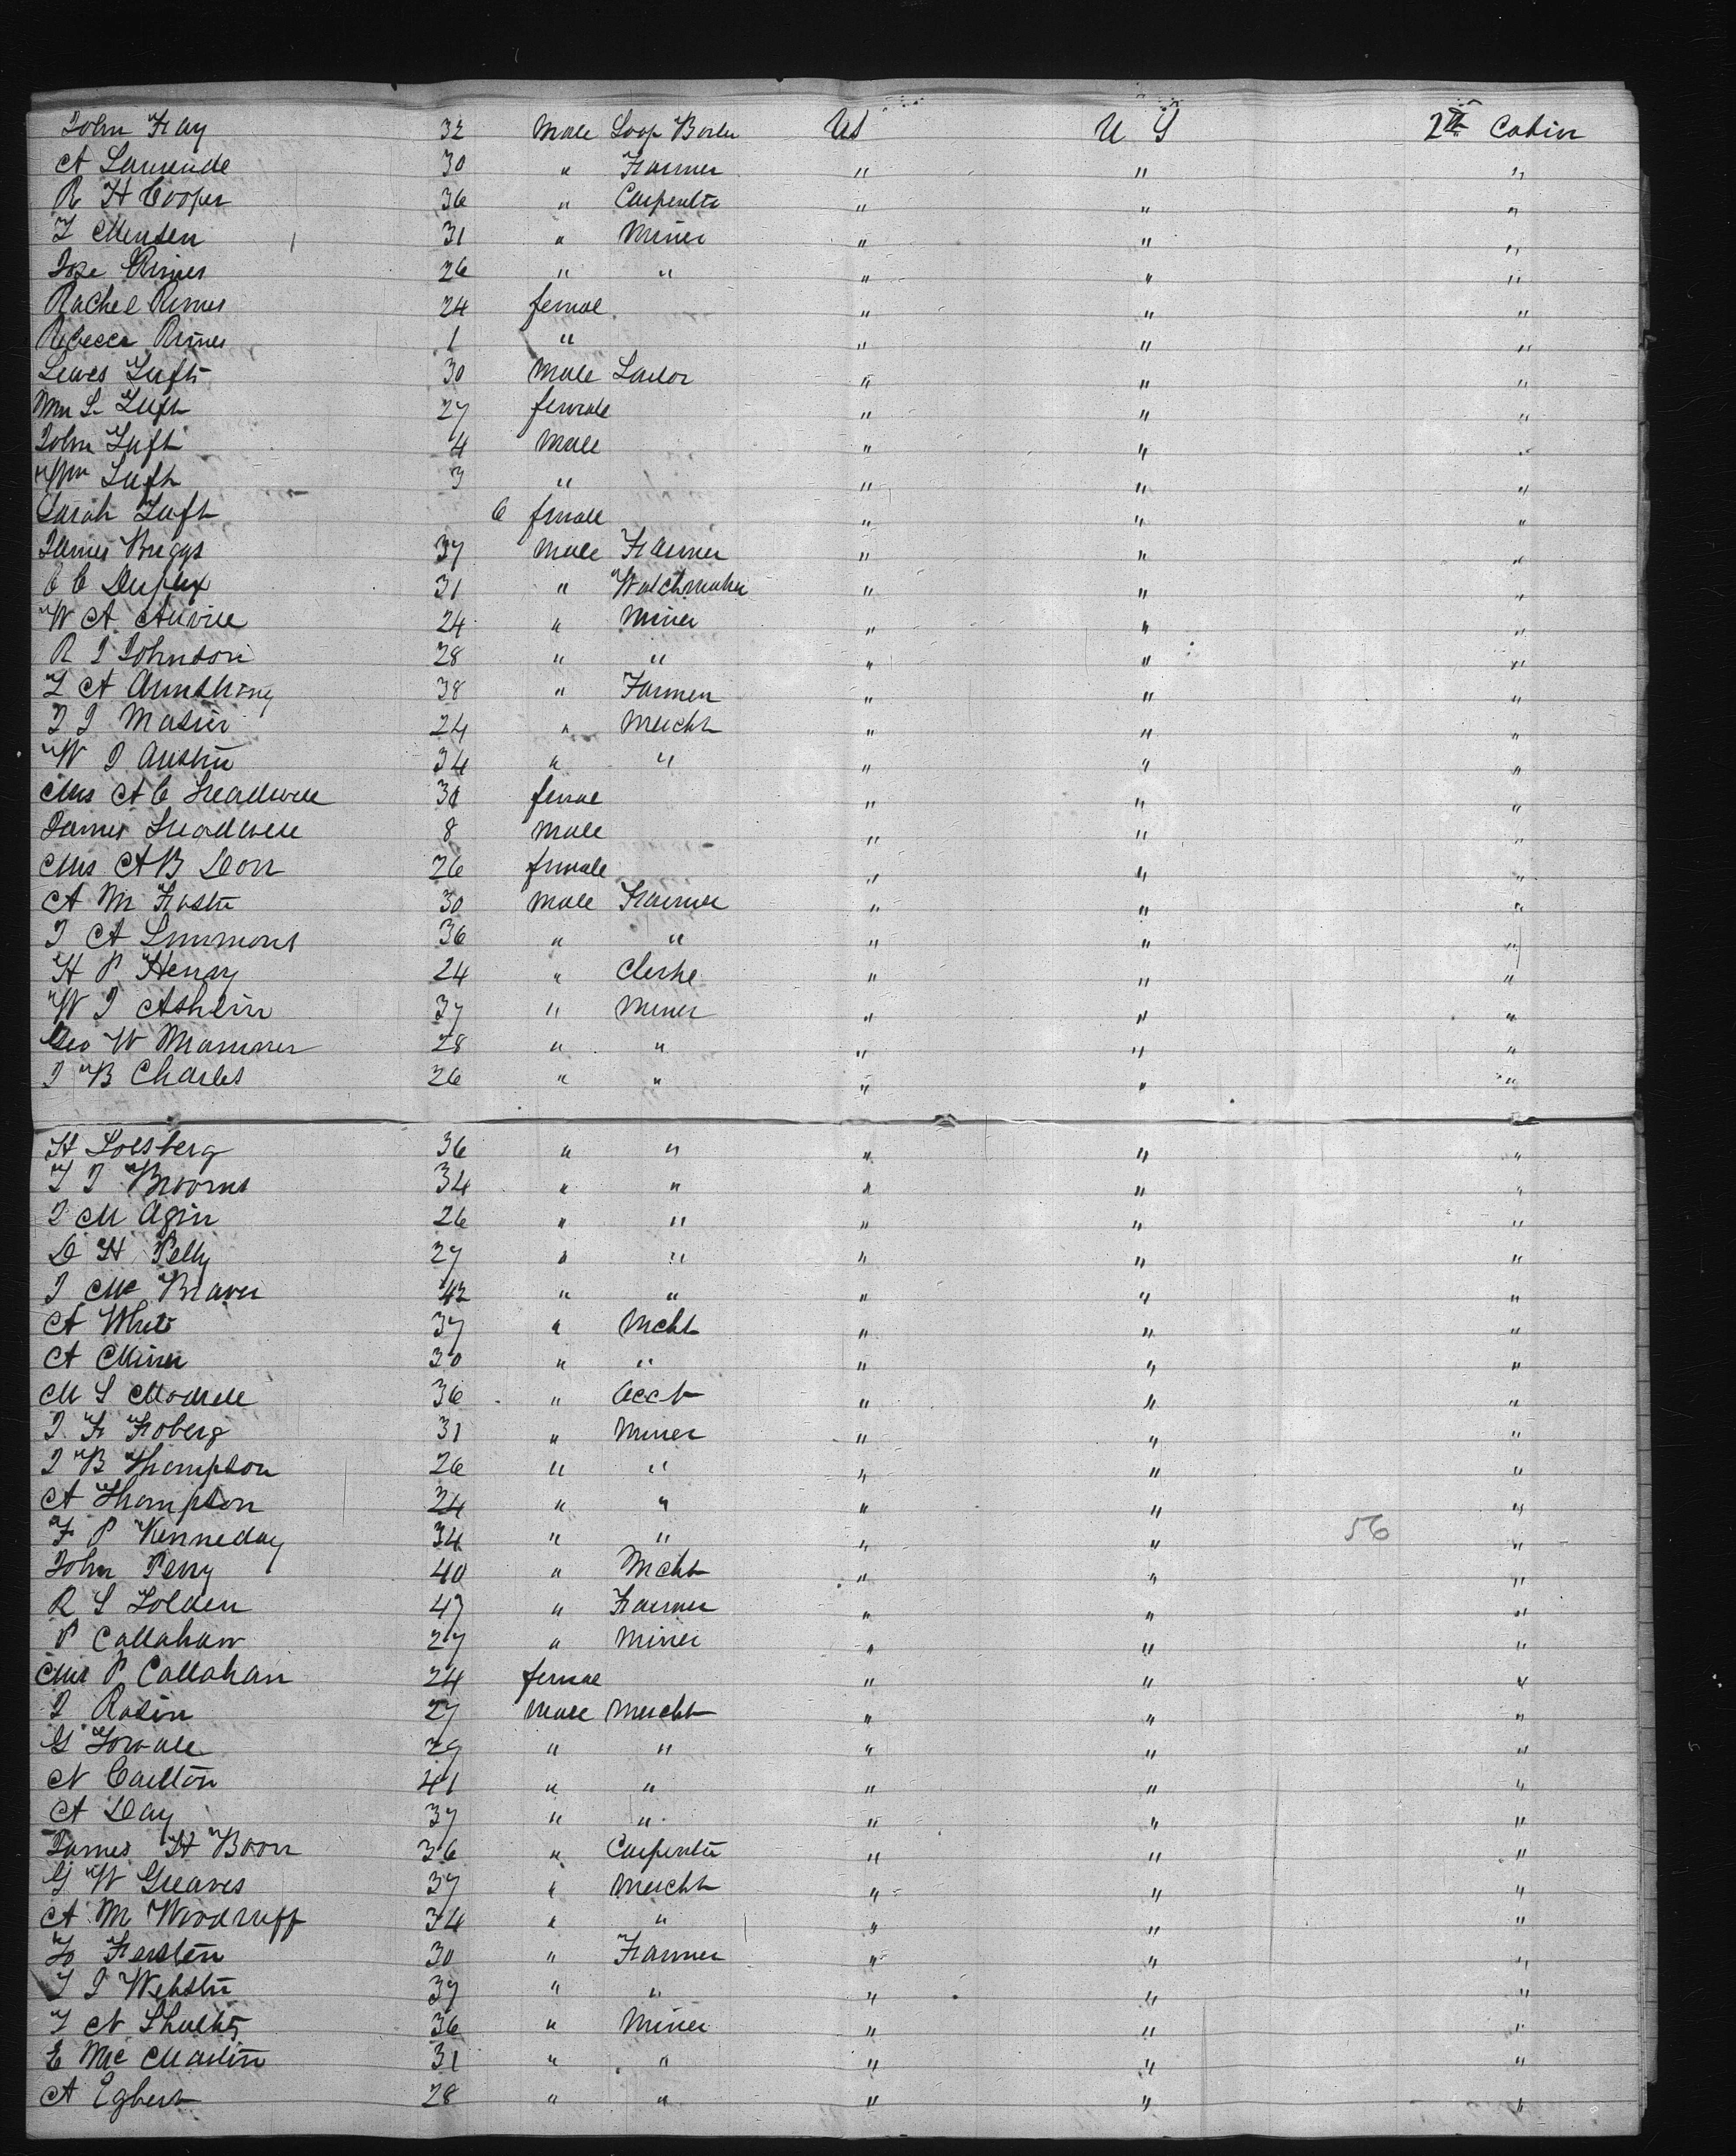 John Fay 32 Male Soap Boiler US U S 2th Cabin
A Lamende 30 " Farmer " " "
R H Cooper 36 " Carpenter " " "
T Munsen 31 " Miner " " "
Jose Rimes 26 " " " " "
Rachel Rimes 24 female " " "
Rebecca Rimes 1 " " " "
Lewes Tuft 30 Male Sailor " " "
Mrs L Tuft 27 female " " "
John Tuft 4 Male " " "
Wm Tuft 3 " " " "
Sarah Tuft 6 female " " "
James Briggs 37 Male Farmer " " "
C C Duplex 31 " Watchmaker " " "
W A 24 " Miner " " "
R J Johnson 28 " " " " "
T A Armstrong 38 " Farmer " " "
J J Masier 24 " Mercht " " "
W J Austin 34 " " " " "
Mrs A C Treadwell 30 femal " " "
James Treadwell 8 Male " " "
Mrs A B Dorr 26 female " " "
A M Foster 30 Male Farmer " " "
J A Simmons 36 " " " " "
H P Henry 24 " Clerke " " "
W J Ashlin 37 " Miner " " "
Geo W Mammer 28 " " " " "
J B Charles 26 " " " " "
H Solsberg 36 " " " " "
T J Brooms 34 " " " " "
J M Agin 26 " " " " "
D H Pelly 27 " " " " "
J Mc Braver 42 " " " " "
A White 37 " Mcht " " "
A Miner 30 " " " " "
M S 36 " Acct " " "
J F Foberg 31 " Miner " " "
J B Thompson 26 " " " " "
A Thompson 24 " " " " "
F P Kenneday 34 " " " 56 "
John Perry 40 " Mcht " " "
R S Tolden 47 " Farmer " " "
P Callahan 27 " Miner " " "
Mrs P Callahan 24 femal " " "
J Rosin 27 Male Mercht " " "
G 29 " " " " "
N Carlton 41 " " " " "
A Day 37 " " " " "
James H Boon 36 " Carpenter " " "
G W Greaves 37 " Mercht " " "
A M Woodruff 34 " " " " "
Jo Fersten 30 " Farmer " " "
T J Webster 37 " " " " "
T N Shults 36 " Miner " " "
E Mc Martin 31 " " " " "
A Egbert 28 " " " " "